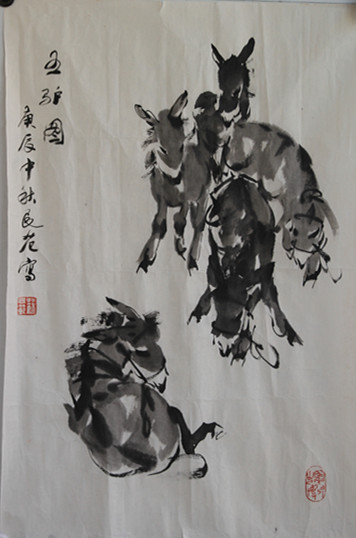 五驴图
庚辰中秋良茫写